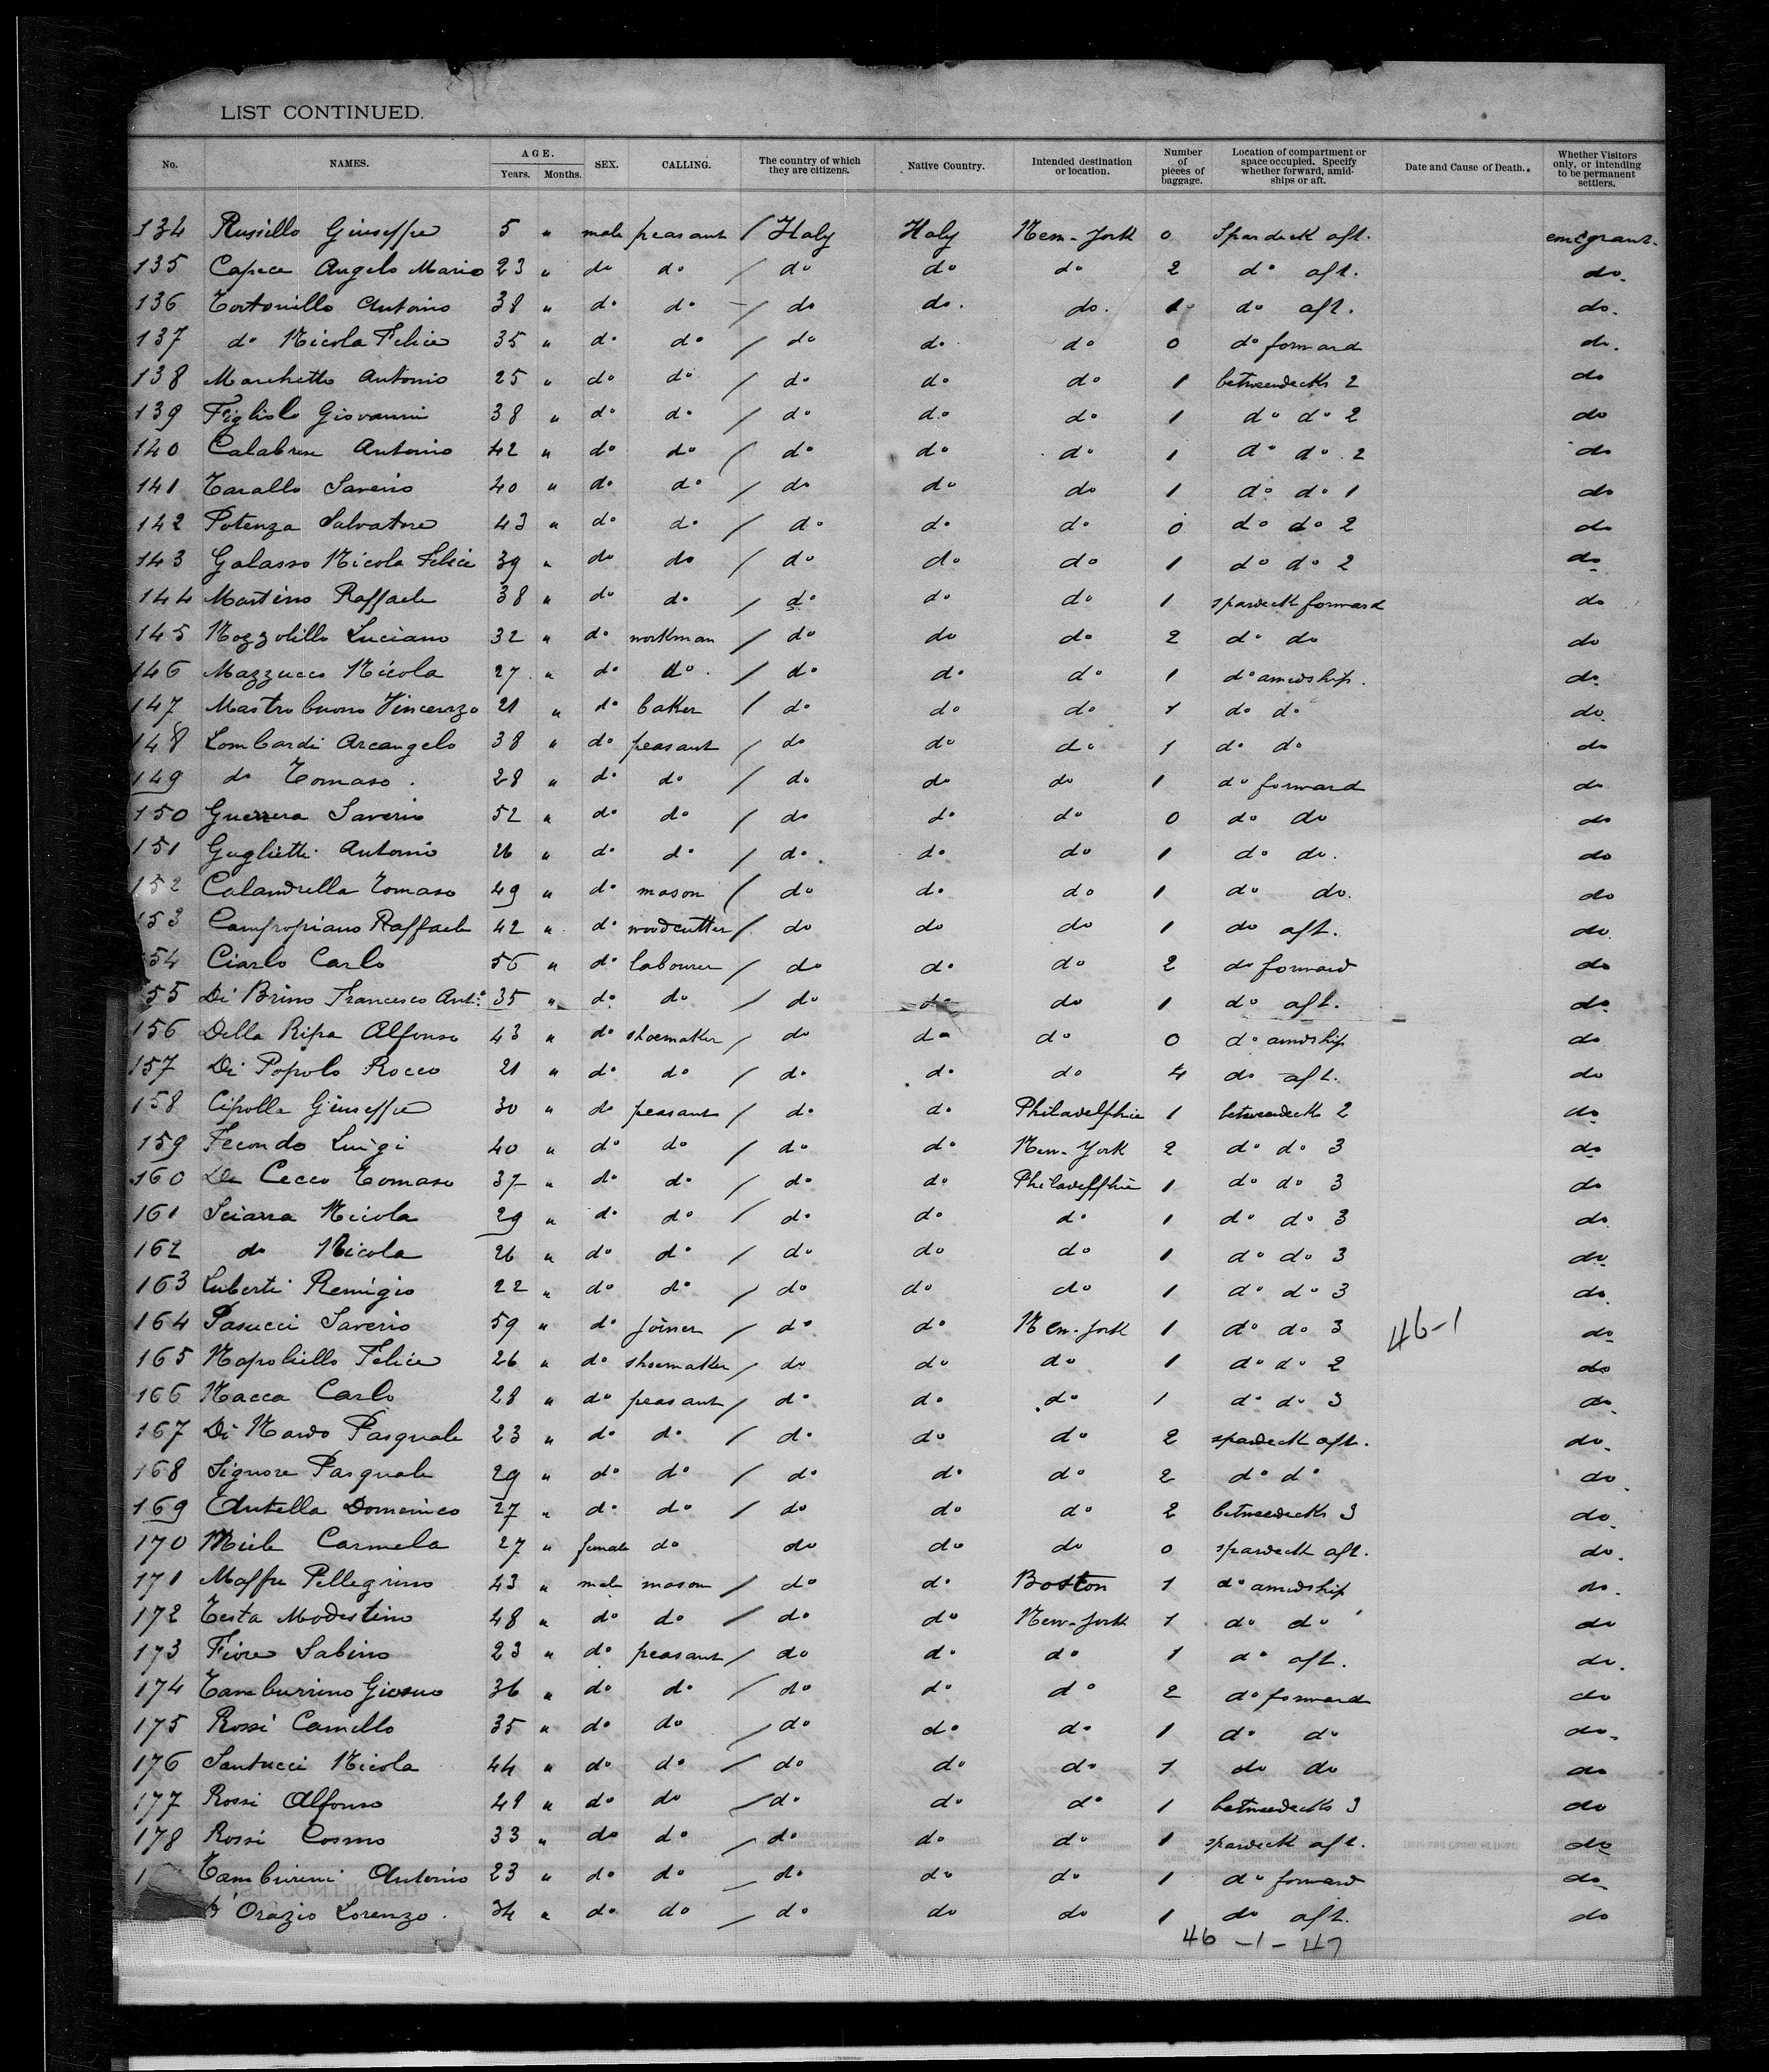 LIST CONTINUED.
No. NAMES. AGE. Years. Months. SEX. CALLING. The country of which they are citizens. Native Country. Intended destination or location. Number of pieces of baggage. Location of compartment or space occupied. Specify whether forward, amid-ships or aft. Date and Cause of Death. Whether Visitors only, or intending to be permanent settlers.
134 Russillo Giuseppe 5 " male peasant / Italy Italy New-York 0 Spardeck aft. emigrant.
135 Capece Angelo Mario 23 " do do / do do do 2 do aft. do.
136 Tortoriello Antonio 38 " do do / do do. do. 1 do aft. do.
137 do Nicola Felice 35 " do do / do do do 0 do forward do.
138 Marchetto Antonio 25 " do do / do do do 1 betweendecks 2 do
139 Figliolo Giovanni 38 " do do / do do do 1 do do 2 do
140 Calabrese Antonio 42 " do do / do do do 1 do do 2 do
141 Tarallo Saverio 40 " do do / do do do 1 do do 1 do
142 Potenza Salvatore 43 " do do / do do do 0 do do 2 do
143 Galasso Nicola Felice 39 " do do / do do do 1 do do 2 do
144 Martino Raffaele 38 " do do / do do do 1 spardeck forward do
145 Nozzolillo Luciano 32 " do workman / do do do 2 do do do
146 Mazzucco Nicola 27 " do do / do do do 1 do amidship. do
147 Mastrobuono Vincenzo 21 " do baker / do do do 1 do do do.
148 Lombardi Arcangelo 38 " do peasant / do do do 1 do do do
149 do Tomaso. 28 " do do / do do do 1 do forward do
150 Guerrera Saverio 52 " do do / do do do 0 do do do
151 Guglietti Antonio 26 " do do / do do do 1 do do. do
152 Calandrella Tomaso 49 " do mason / do do do 1 do do. do
153 Campopiano Raffaele 42 " do woodcutter / do do do 1 do aft. do
54 Ciarlo Carlo 56 " do labourer / do do do 2 do forward do
55 Di Brino Francesco Anto. 35 " do do / do do do 1 do aft. do
156 Della Ripa Alfonso 43 " do shoemaker / do do do 0 do amidship do
157 Di Popolo Rocco 21 " do do / do do do 4 do aft. do
158 Cipolla Giuseppe 30 " do peasant / do do Philadelphia 1 betweendeck 2 do
159 Fecondo Luigi 40 " do do / do do New-York 2 do do 3 do
160 De Cecco Tomaso 37 " do do / do do Philadelphia 1 do do 3 do
161 Sciarra Nicola 29 " do do / do do do 1 do do 3 do
162 do Nicola 26 " do do / do do do 1 do do 3 do
163 Luberti Remigio 22 " do do / do do do 1 do do 3 do
164 Pasucci Saverio 59 " do joiner / do do New-York 1 do do 3 46-1 do
165 Napoliello Felice 26 " do shoemaker / do do do 1 do do 2 do
166 Nacca Carlo 28 " do peasant / do do do 1 do do 3 do
167 Di Nardo Pasquale 23 " do do / do do do 2 spardeck aft. do.
168 Signore Pasquale 29 " do do / do do do 2 do do do
169 Antella Domenico 27 " do do / do do do 2 betweendecks 3 do
170 Miele Carmela 27 " female do do do do 0 spardeck aft. do.
171 Maffei Pellegrino 43 " male mason / do do Boston 1 do amidship do.
172 Testa Modestino 48 " do do / do do New-York 1 do do do
173 Fiore Sabino 23 " do peasant / do do do 1 do aft. do.
174 Tamburrino Giosue 36 " do do / do do do 2 do forward do
175 Rossi Camillo 35 " do do / do do do 1 do do do
176 Santucci Nicola 44 " do do / do do do 1 do do do
177 Rossi Alfonso " do do / do do do 1 betweendecks 3 do
178 Rossi Cosmo 33 " do do / do do do 1 spardeck aft. do
1 Tamburini Antonio 23 " do do / do do do 1 do forward do
D'Orazio Lorenzo. 34 " do do / do do do 1 do aft. do
46 -1- 47